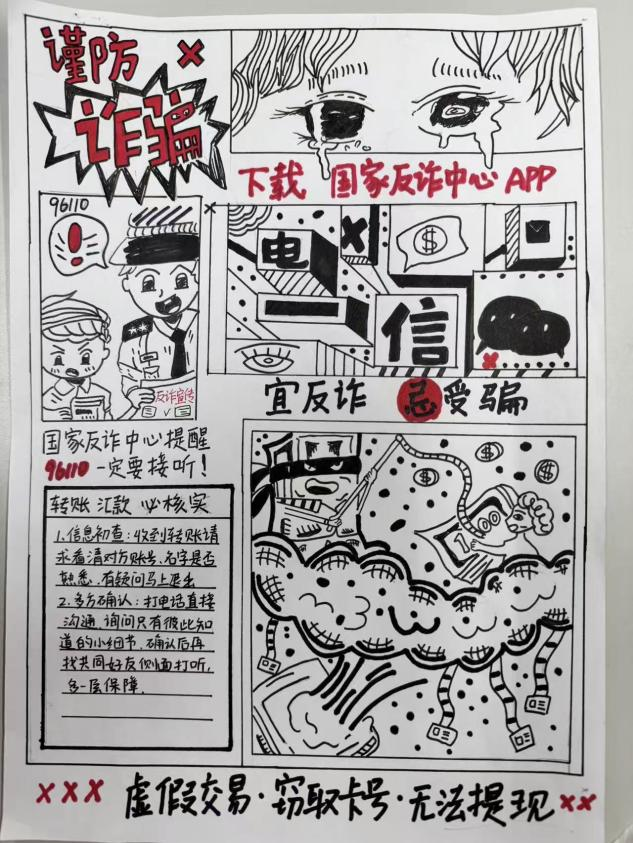 谨防
诈骗
下载 国家反诈中心 APP
96110
!
反诈宣传
电
信
$
宜反诈 忌受骗
国家反诈中心提醒
96110 一定要接听!
转账 汇款 必核实
1.信息初查:收到转账请
求看清对方账号、名字是否
熟悉,有疑问马上退出
2.多方确认:打电话直接
沟通,询问只有彼此知
道的小细节,确认后再
找共同好友侧面打听,
多一层保障.
$
$
$
×××虚假交易·窃取卡号·无法提现××